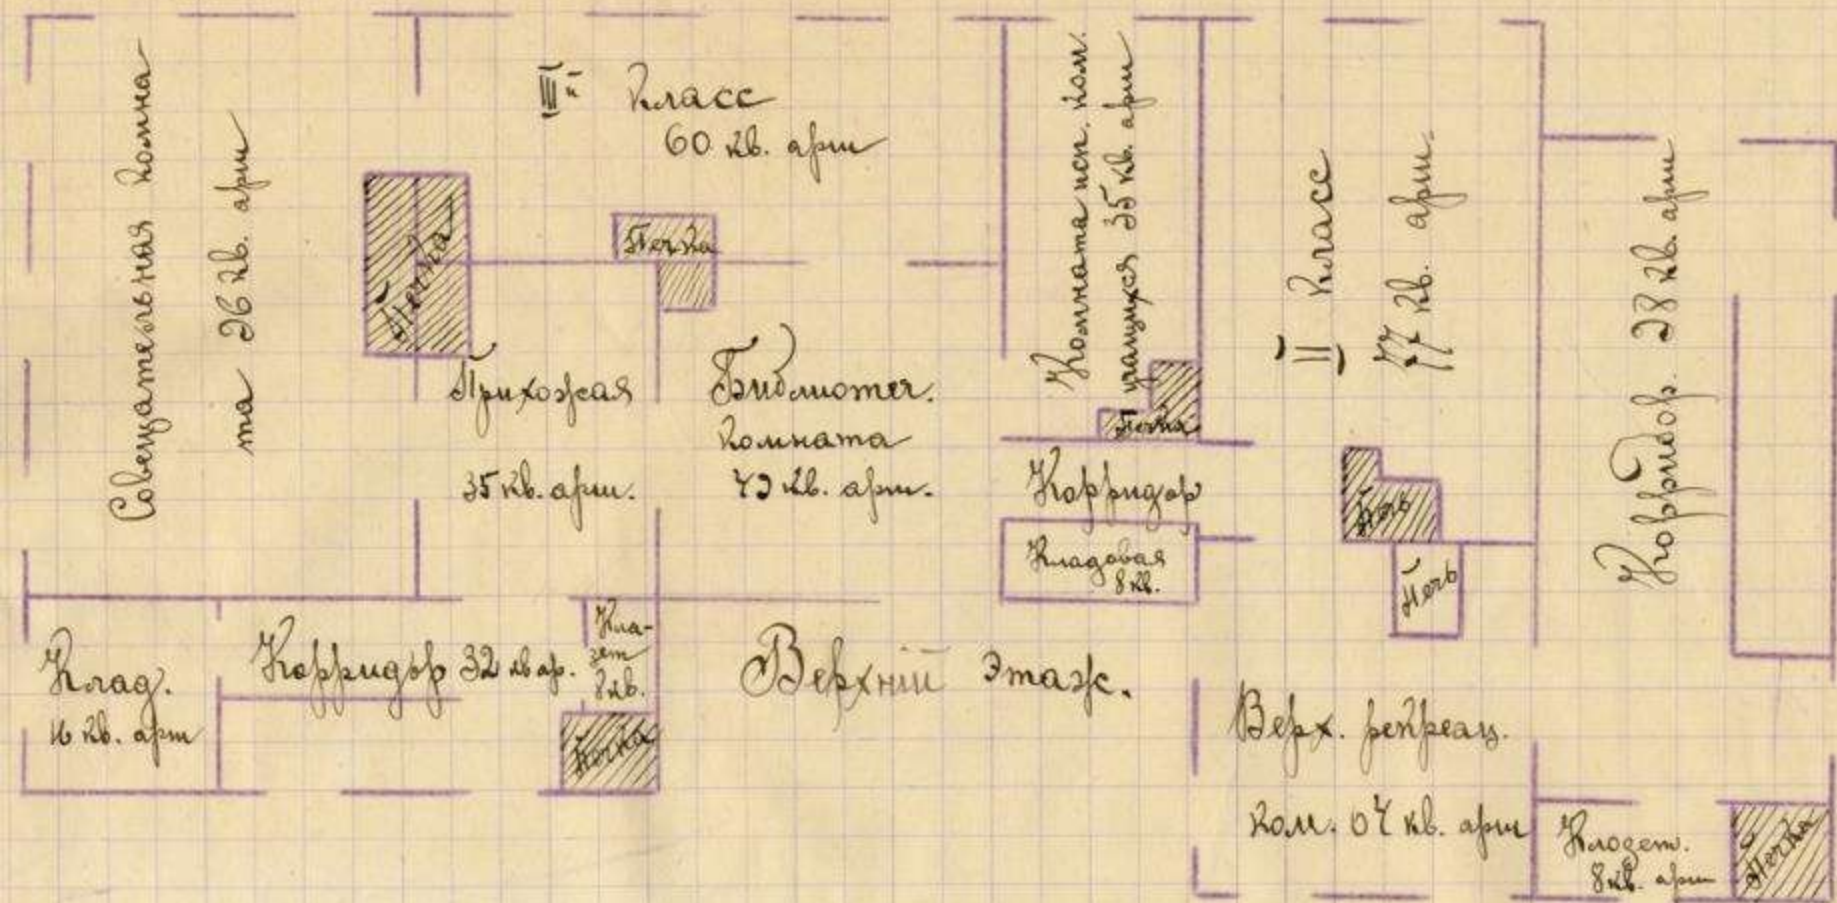 Совещательная комна
та 26 кв. арш
III й класс
60 кв. арш
Печка
Печка
Прихожая
35 кв. арш.
Библиотеч.
комната
42 кв. арш.
Комната исп. ком.
учащихся 35 кв. арш
Печка
II класс
77 кв. арш.
Корридор 28 кв. арш
Корридор
Кладовая
8 кв.
Печь
Печь
Клад.
16 кв. арш
Корридор 32 кв ар.
Кла-
зет
8 кв.
Печка
Верхний Этаж.
Верх. рекреац.
ком. 64 кв. арш
Клозет.
8 кв. арш
Печка